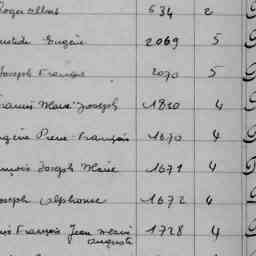 Roger Albert 634 2
Eugène 2069 5
Joseph François 2070 5
Francis Marie Joseph 1820 4
Eugène Pierre François 1670 4
François Joseph Marie 1671 4
Joseph Alphonse 1672 4
François Jean Marie 1728 4
Auguste